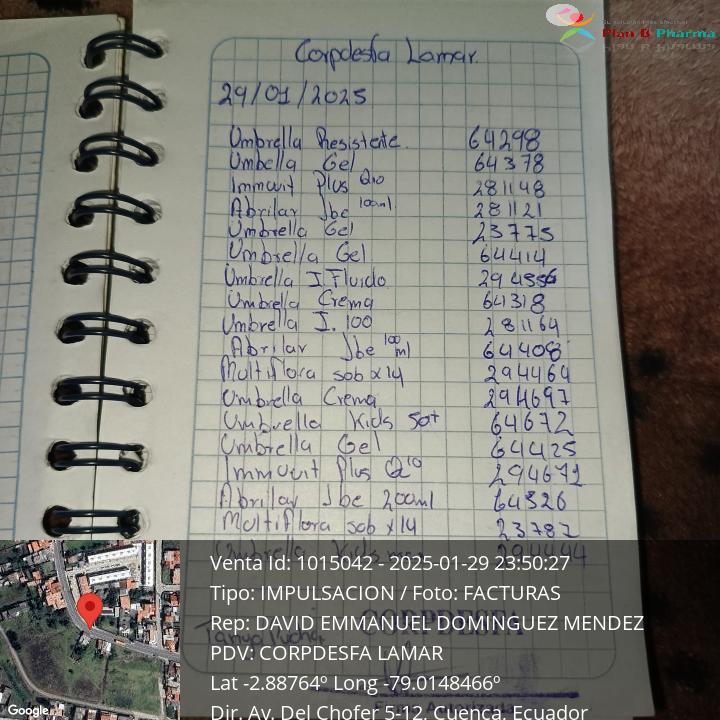 Plan B Pharma
Corpdesfa Lamar.
29/01/2025
Umbrella Resistente. 64298
Umbella Gel 64378
Immuvit Plus Q10 281148
Abrilar Jbe 100ml. 281121
Umbrella Gel 23775
Umbrella Gel 64414
Umbrella I. Fluido 294556
Umbrella Crema 64318
Umbrella I. 100 281164
Abrilar Jbe 100 ml 64408
Multiflora sob x14 294464
Umbrella Crema 294697
Umbrella Kids 50+ 64672
Umbrella Gel 64425
Immuvit Plus Q10 294672
Abrilar Jbe 200ml 64326
Multiflora sob x14 23782
Umbrella Kids 294444
CORPDESFA
Venta Id: 1015042 - 2025-01-29 23:50:27
Tipo: IMPULSACION / Foto: FACTURAS
Rep: DAVID EMMANUEL DOMINGUEZ MENDEZ
PDV: CORPDESFA LAMAR
Lat -2.88764º Long -79.0148466º
Dir. Av. Del Chofer 5-12, Cuenca, Ecuador
Google